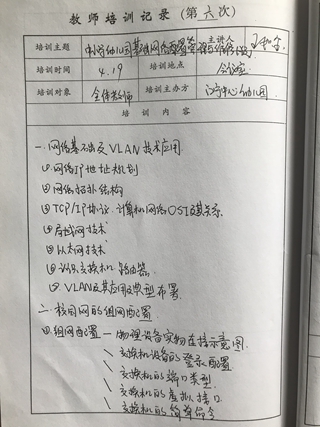 教师培训记录(第六次)
培训主题 中心幼儿园基础网络配置管理 主讲人
培训时间 4.19 培训地点 会议室
培训对象 全体教师 培训主办方 中心幼儿园
培训内容
一.网络基础及VLAN技术应用
①网络IP地址规划
②网络拓扑结构
③TCP/IP协议、计算机网络OSI及其关系
④局域网技术
⑤以太网技术
⑥认识交换机、路由器
⑦VLAN及其应用及典型布署
二.校园网的组网配置
①组网配置—物理设备实物连接示意图
交换机设备的登录配置
交换机的端口类型
交换机的虚拟接口
交换机的简单命令